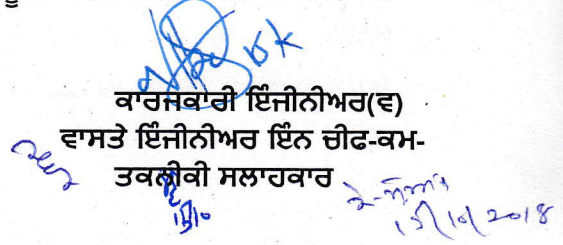 ਕਾਰਜਕਾਰੀ ਇੰਜੀਨੀਅਰ(ਵ)
ਵਾਸਤੇ ਇੰਜੀਨੀਅਰ ਇਨ ਚੀਫ-ਕਮ-
ਤਕਨੀਕੀ ਸਲਾਹਕਾਰ
15/10
15/10/2018